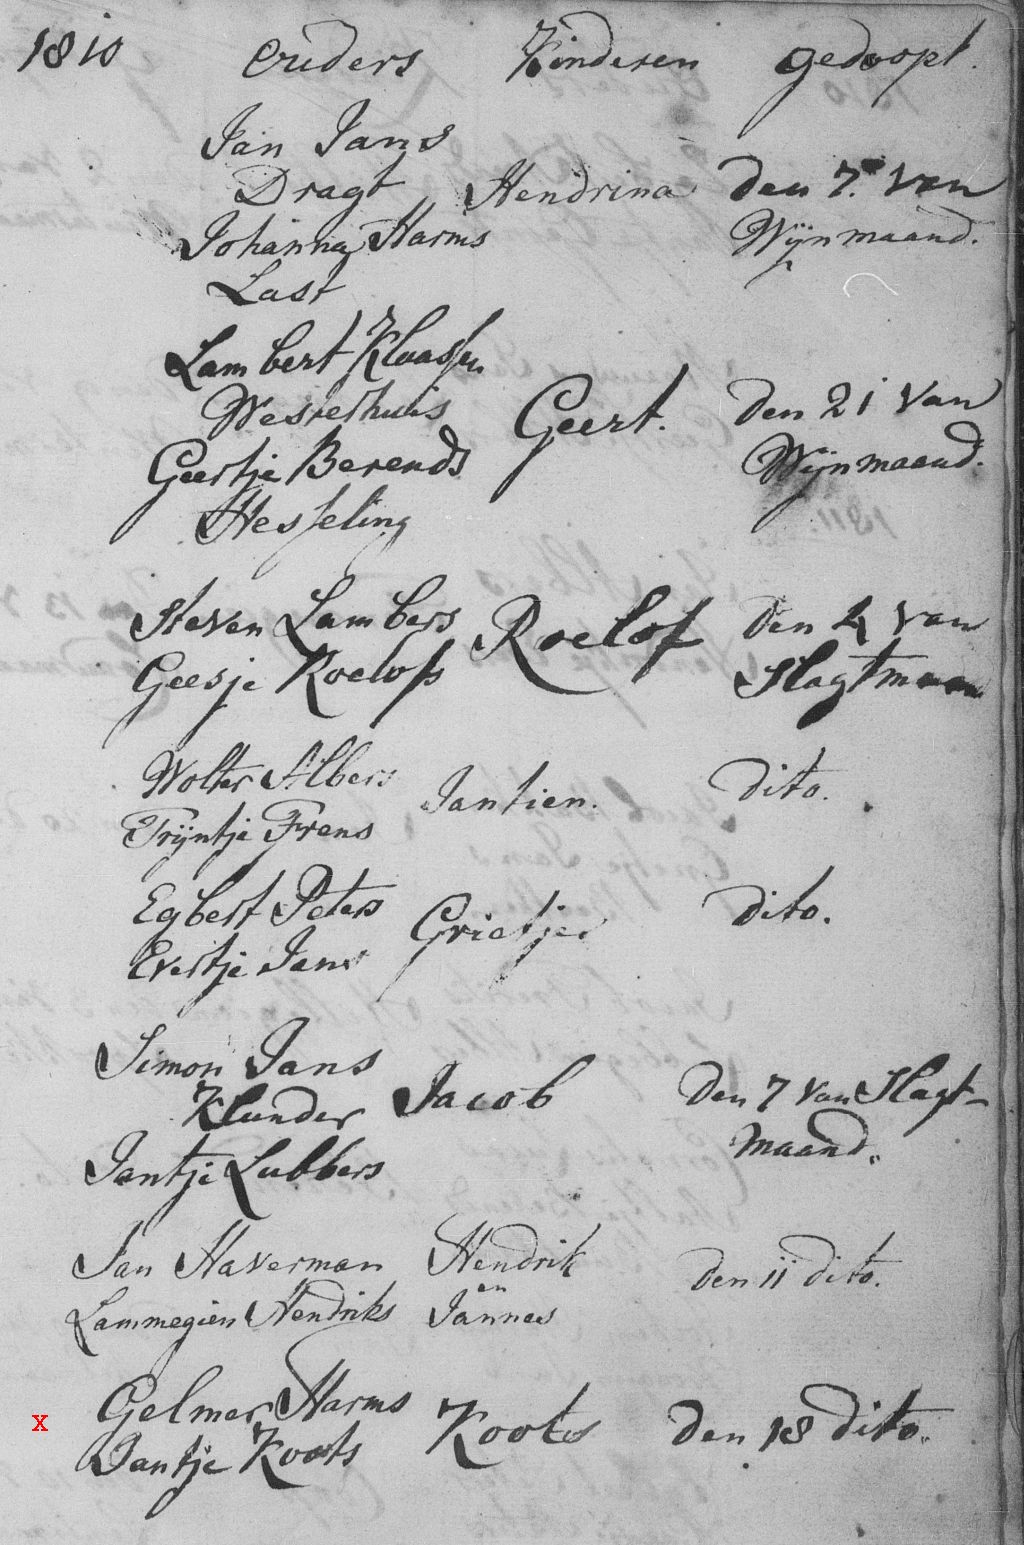 1810 Ouders Kinderen gedoopt.
Jan Jans
Dragt Hendrina den 7. van
Johanna Harms Wijnmaand.
Last
Lambert Klaassen
Westerhuis Geert. den 21 van
Geertje Berends Wijnmaand.
Hesseling
Steven Lambers Roelof den 4 van
Geesje Roelofs Slagtmaan
Wolter Albers Jantien. dito.
Trijntje Frens
Egbert Peters Grietje dito.
Evertje Jans
Simon Jans
Klunder Jacob den 7 van Slagt-
maand.
Jantje Lubbers
Jan Haverman Hendrik den 11 dito.
en
Lammegien Hendriks Jannes
X Gelmer Harms Koots den 18 dito.
Jantje Koots